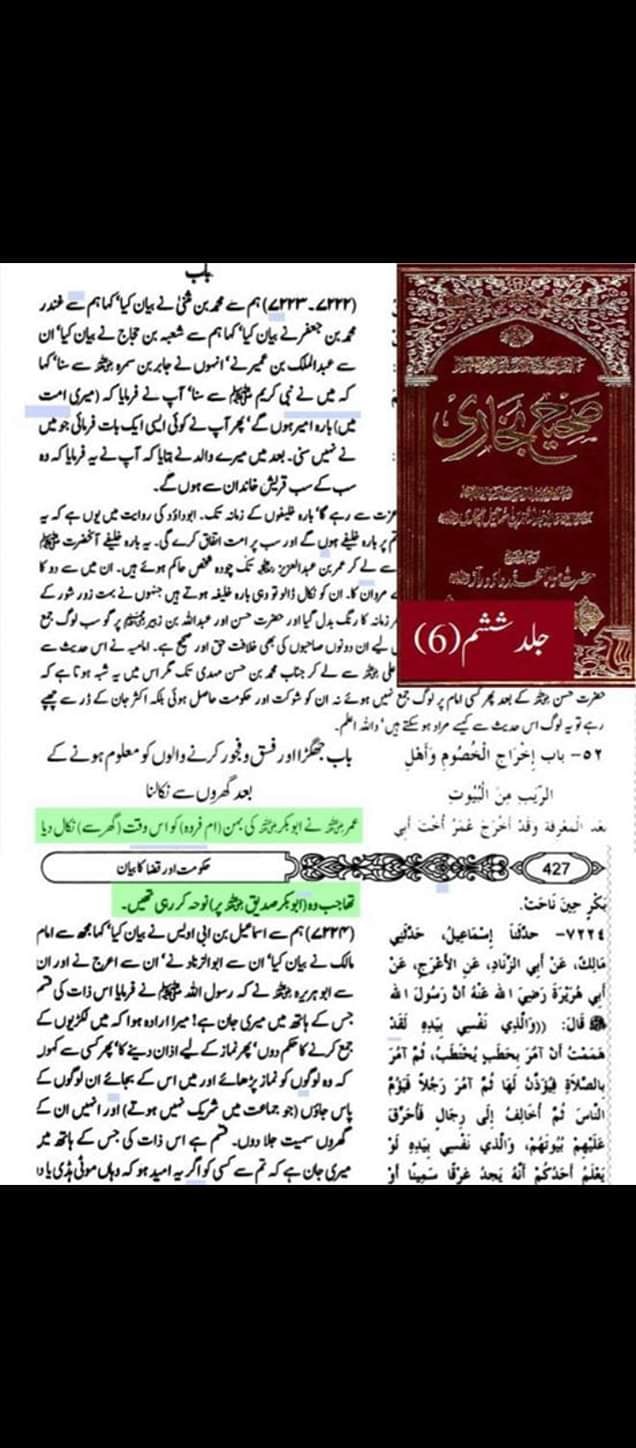 باب
(۷۲۲۲۔۷۲۲۳) ہم سے محمد بن مثنیٰ نے بیان کیا' کہا ہم سے غندر
محمد بن جعفر نے بیان کیا' کہا ہم سے شعبہ بن حجاج نے بیان کیا' ان
سے عبدالملک بن عمیر نے' انہوں نے جابر بن سمرہ رضی اللہ عنہ سے سنا' کہا
کہ میں نے نبی کریم ﷺ سے سنا' آپ نے فرمایا کہ (میری امت
میں) بارہ امیر ہوں گے' پھر آپ نے کوئی ایسی ایک بات فرمائی جو میں
نے نہیں سنی۔ بعد میں میرے والد نے بتایا کہ آپ نے یہ فرمایا کہ وہ
سب کے سب قریش خاندان سے ہوں گے۔
صحیح بخاری
جلد ششم (6)
عزت سے رہے گا' بارہ خلیفوں کے زمانہ تک۔ ابوداؤد کی روایت میں یوں ہے کہ یہ
تم پر بارہ خلیفے ہوں گے اور سب پر امت اتفاق کرے گی۔ یہ بارہ خلیفے آنحضرت ﷺ
سے لے کر عمر بن عبدالعزیز رضی اللہ عنہ تک چودہ شخص حاکم ہوئے ہیں۔ ان میں سے دو کا
مروان کا۔ ان کو نکال ڈالو تو وہی بارہ خلیفہ ہوتے ہیں جنہوں نے بہت زور شور کے
زمانہ کا رنگ بدل گیا اور حضرت حسن اور عبداللہ بن زبیر رضی اللہ عنہم پر گو سب لوگ جمع
لیے ان دونوں صاحبوں کی بھی خلافت حق اور صحیح ہے۔ امامیہ نے اس حدیث سے
علی رضی اللہ عنہ سے لے کر جناب محمد بن حسن مہدی تک مگر اس میں یہ شبہ ہوتا ہے کہ
حضرت حسن رضی اللہ عنہ کے بعد پھر کسی امام پر لوگ جمع نہیں ہوئے نہ ان کو شوکت اور حکومت حاصل ہوئی بلکہ اکثر جان کے ڈر سے چھپے
رہے تو یہ لوگ اس حدیث سے کیسے مراد ہو سکتے ہیں' واللہ اعلم۔
۵۲- باب إِخْرَاجِ الْخُصُومِ وَأَهْلِ
الرِّيَبِ مِنَ الْبُيُوتِ
بَعْدَ الْمَعْرِفَةِ وَقَدْ أَخْرَجَ عُمَرُ أُخْتَ أَبِي
باب جھگڑا اور فسق و فجور کرنے والوں کو معلوم ہونے کے
بعد گھروں سے نکالنا
عمر رضی اللہ عنہ نے ابوبکر رضی اللہ عنہ کی بہن (ام فروہ) کو اس وقت (گھر سے) نکال دیا
427
حکومت اور قضا کا بیان
بَكْرٍ حِينَ نَاحَتْ.
۷۲۲٤- حَدَّثَنَا إِسْمَاعِيلُ، حَدَّثَنِي
مَالِكٌ، عَنْ أَبِي الزِّنَادِ، عَنِ الأَعْرَجِ، عَنْ
أَبِي هُرَيْرَةَ رَضِيَ اللهُ عَنْهُ أَنَّ رَسُولَ اللهِ
ﷺ قَالَ: ((وَالَّذِي نَفْسِي بِيَدِهِ لَقَدْ
هَمَمْتُ أَنْ آمُرَ بِحَطَبٍ يُحْتَطَبُ، ثُمَّ آمُرَ
بِالصَّلاَةِ فَيُؤَذَّنَ لَهَا ثُمَّ آمُرَ رَجُلاً فَيَؤُمَّ
النَّاسَ ثُمَّ أُخَالِفَ إِلَى رِجَالٍ فَأُحَرِّقَ
عَلَيْهِمْ بُيُوتَهُمْ، وَالَّذِي نَفْسِي بِيَدِهِ لَوْ
يَعْلَمُ أَحَدُكُمْ أَنَّهُ يَجِدُ عَرْقًا سَمِينًا أَوْ
تھا جب وہ (ابوبکر صدیق رضی اللہ عنہ پر) نوحہ کر رہی تھیں۔
(۷۲۲۴) ہم سے اسماعیل بن ابی اویس نے بیان کیا' کہا مجھ سے امام
مالک نے بیان کیا' ان سے ابوالزناد نے' ان سے اعرج نے اور ان
سے ابو ہریرہ رضی اللہ عنہ نے کہ رسول اللہ ﷺ نے فرمایا اس ذات کی قسم
جس کے ہاتھ میں میری جان ہے! میرا ارادہ ہوا کہ میں لکڑیوں کے
جمع کرنے کا حکم دوں' پھر نماز کے لیے اذان دینے کا' پھر کسی سے کہوں
کہ وہ لوگوں کو نماز پڑھائے اور میں اس کے بجائے ان لوگوں کے
پاس جاؤں (جو جماعت میں شریک نہیں ہوتے) اور انہیں ان کے
گھروں سمیت جلا دوں۔ قسم ہے اس ذات کی جس کے ہاتھ میں
میری جان ہے کہ تم سے کسی کو اگر یہ امید ہو کہ وہاں موٹی ہڈی یا دو